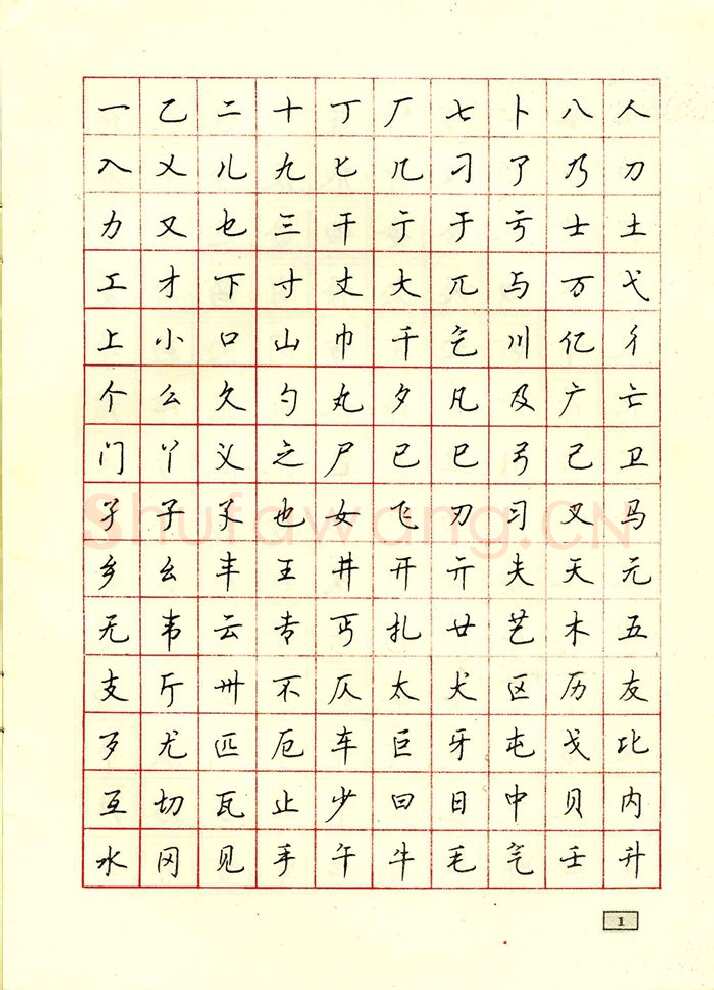 一乙二十丁厂七卜八人
入乂儿九匕几刁了乃刀
力又乜三干亍于亏士土
工才下寸丈大兀与万弋
上小口山巾千乞川亿彳
个么久勺丸夕凡及广亡
门丫义之尸已巳弓己卫
孑子孓也女飞刃习叉马
乡幺丰王井开亓夫天元
无韦云专丐扎廿艺木五
支斤卅不仄太犬区历友
歹尤匹厄车巨牙屯戈比
互切瓦止少曰日中贝内
水冈见手午牛毛气壬升
Shufawang.CN
1